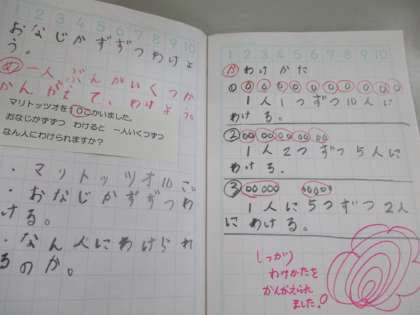 1 2 3 4 5 6 7 8 9 10
おなじかずずつわけよ
う。
め 一人ぶんがいくつか
かんがえて、わけよう。
マリトッツオを10こかいました。
おなじかずずつ わけると 一人いくつずつ
なん人にわけられますか?
・マリトッツオ10こ
・おなじかずずつわ
ける。
・なん人にわけられ
るのか。
1 2 3 4 5 6 7 8 9 10
か わけかた
①
1人1つずつ10人に
わける。
②
1人2つずつ5人に
わける。
③
1人に5つずつ2人
にわける。
しっかり
わけかたを
かんがえられ
ました!